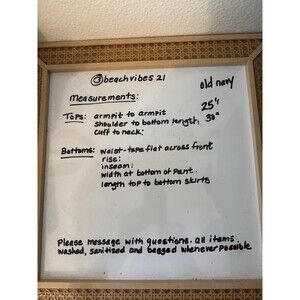 @beachvibes21
old navy
Measurements:
Tops: armpit to armpit 25"
shoulder to bottom length 30"
cuff to neck:
Bottoms: waist-tape flat across front
rise:
inseam:
width at bottom of pant.
length top to bottom skirts
Please message with questions. all items
washed, sanitized and bagged whenever possible